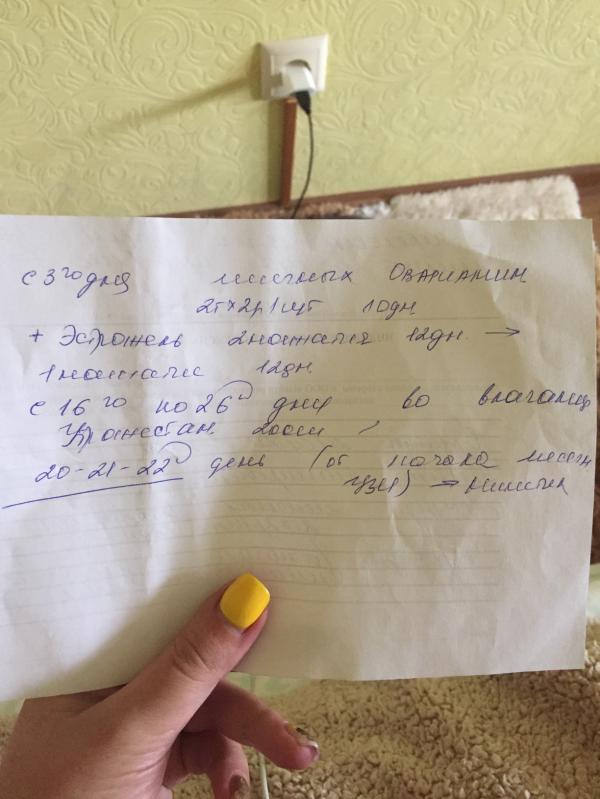 с 3го дня месячных ОВАРИАМИН
2т х 2р/сут 10дн
+ Эстрожель 2 нажатия 12дн. →
1 нажатие 12дн.
с 16го по 26й дни во влагалищ
Утрожестан 200мг
20-21-22й день (от начала месячн
УЗИ) →